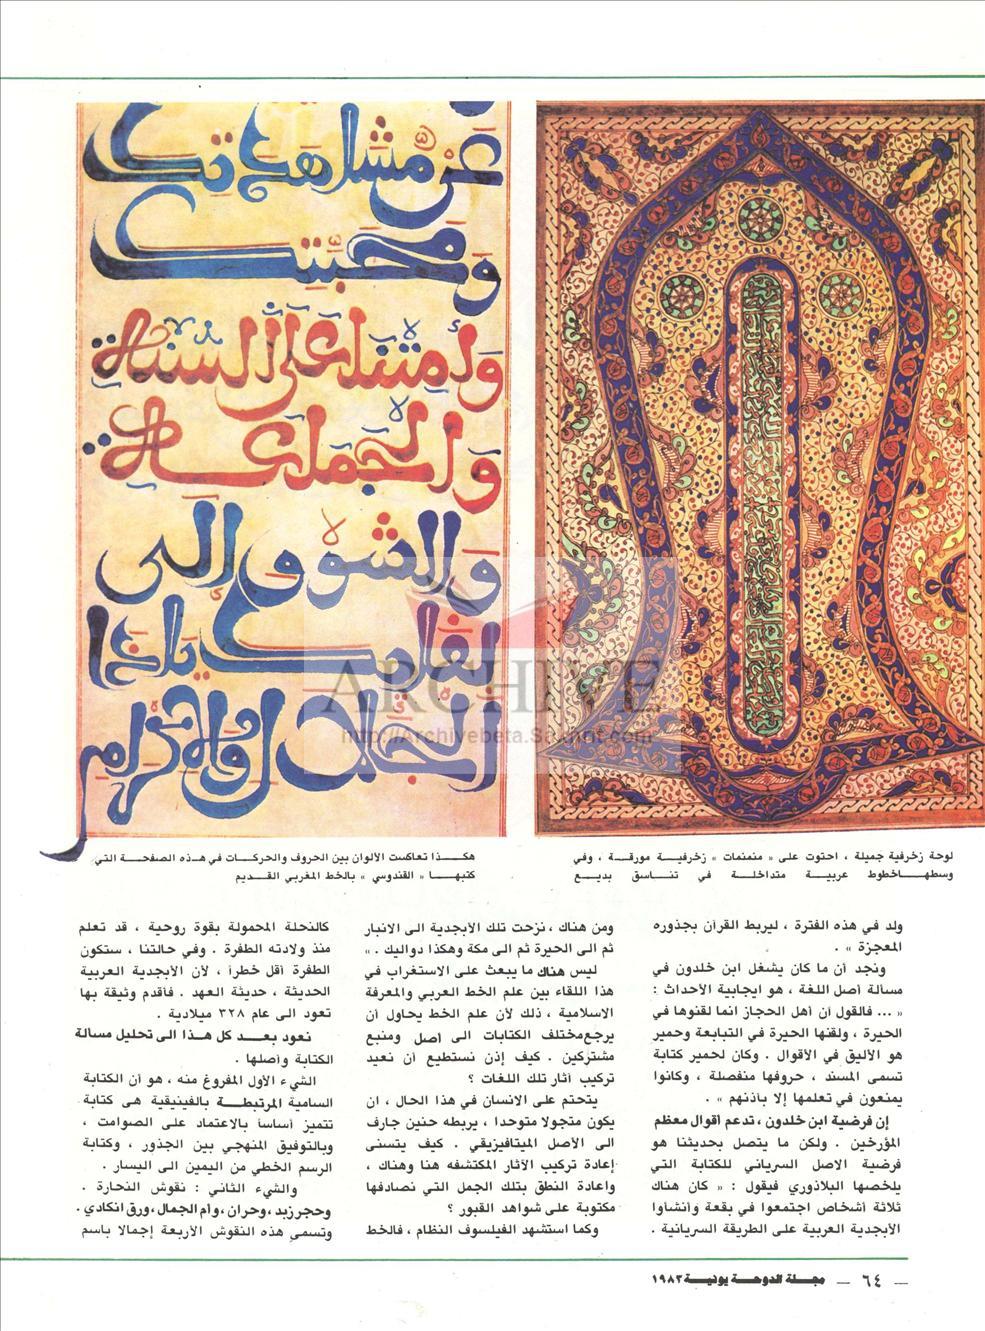 عن مشاهدتك
ومحبتك
وأمتنا على السنة
والجماعة
والشوق إلى
لقايك ياذا
الجلال والإكرام
ARCHIVE
http://Archivebeta.Sakhrit.com
لوحة زخرفية جميلة ، احتوت على « منمنمات » زخرفية مورقة ، وفي
وسطها خطوط عربية متداخلة في تناسق بديع
هكذا تعاكست الألوان بين الحروف والحركات في هذه الصفحة التي
كتبها « القندوسي » بالخط المغربي القديم
ولد في هذه الفترة ، ليربط القرآن بجذوره
المعجزة » .
ونجد أن ما كان يشغل ابن خلدون في
مسالة أصل اللغة ، هو ايجابية الأحداث :
« ... فالقول أن أهل الحجاز انما لقنوها في
الحيرة ، ولقنها الحيرة في التبابعة وحمير
هو الأليق في الأقوال . وكان لحمير كتابة
تسمى المسند ، حروفها منفصلة ، وكانوا
يمنعون في تعلمها إلا بأذنهم » .
إن فرضية ابن خلدون ، تدعم أقوال معظم
المؤرخين . ولكن ما يتصل بحديثنا هو
فرضية الاصل السرياني للكتابة التي
يلخصها البلاذوري فيقول : « كان هناك
ثلاثة أشخاص اجتمعوا في بقعة وأنشأوا
الأبجدية العربية على الطريقة السريانية .
ومن هناك ، نزحت تلك الأبجدية الى الانبار
ثم الى الحيرة ثم الى مكة وهكذا دواليك . »
ليس هناك ما يبعث على الاستغراب في
هذا اللقاء بين علم الخط العربي والمعرفة
الاسلامية ، ذلك لأن علم الخط يحاول أن
يرجع مختلف الكتابات الى أصل ومنبع
مشتركين . كيف إذن نستطيع أن نعيد
تركيب أثار تلك اللغات ؟
يتحتم على الانسان في هذا الحال ، ان
يكون متجولا متوحدا ، يربطه حنين جارف
الى الأصل الميتافيزيقي . كيف يتسنى
إعادة تركيب الأثار المكتشفه هنا وهناك ،
واعادة النطق بتلك الجمل التي نصادفها
مكتوبة على شواهد القبور ؟
وكما استشهد الفيلسوف النظام ، فالخط
كالنحلة المحمولة بقوة روحية ، قد تعلم
منذ ولادته الطفرة . وفي حالتنا ، ستكون
الطفرة أقل خطرأ ، لأن الأبجدية العربية
الحديثة ، حديثة العهد . فأقدم وثيقة بها
تعود الى عام ٣٢٨ ميلادية .
نعود بعد كل هذا الى تحليل مسالة
الكتابة وأصلها .
الشيء الأول المفروغ منه ، هو أن الكتابة
السامية المرتبطة بالفينيقية هى كتابة
تتميز أساسأ بالاعتماد على الصوامت ،
وبالتوفيق المنهجي بين الجذور ، وكتابة
الرسم الخطي من اليمين الى اليسار .
والشيء الثاني : نقوش النحارة .
وحجر زبد ، وحران ، وأم الجمال ، ورق انكادي .
وتسمى هذه النقوش الأربعة إجمالا باسم
— ٦٤ — مجلة الدوحة يونية ١٩٨٣